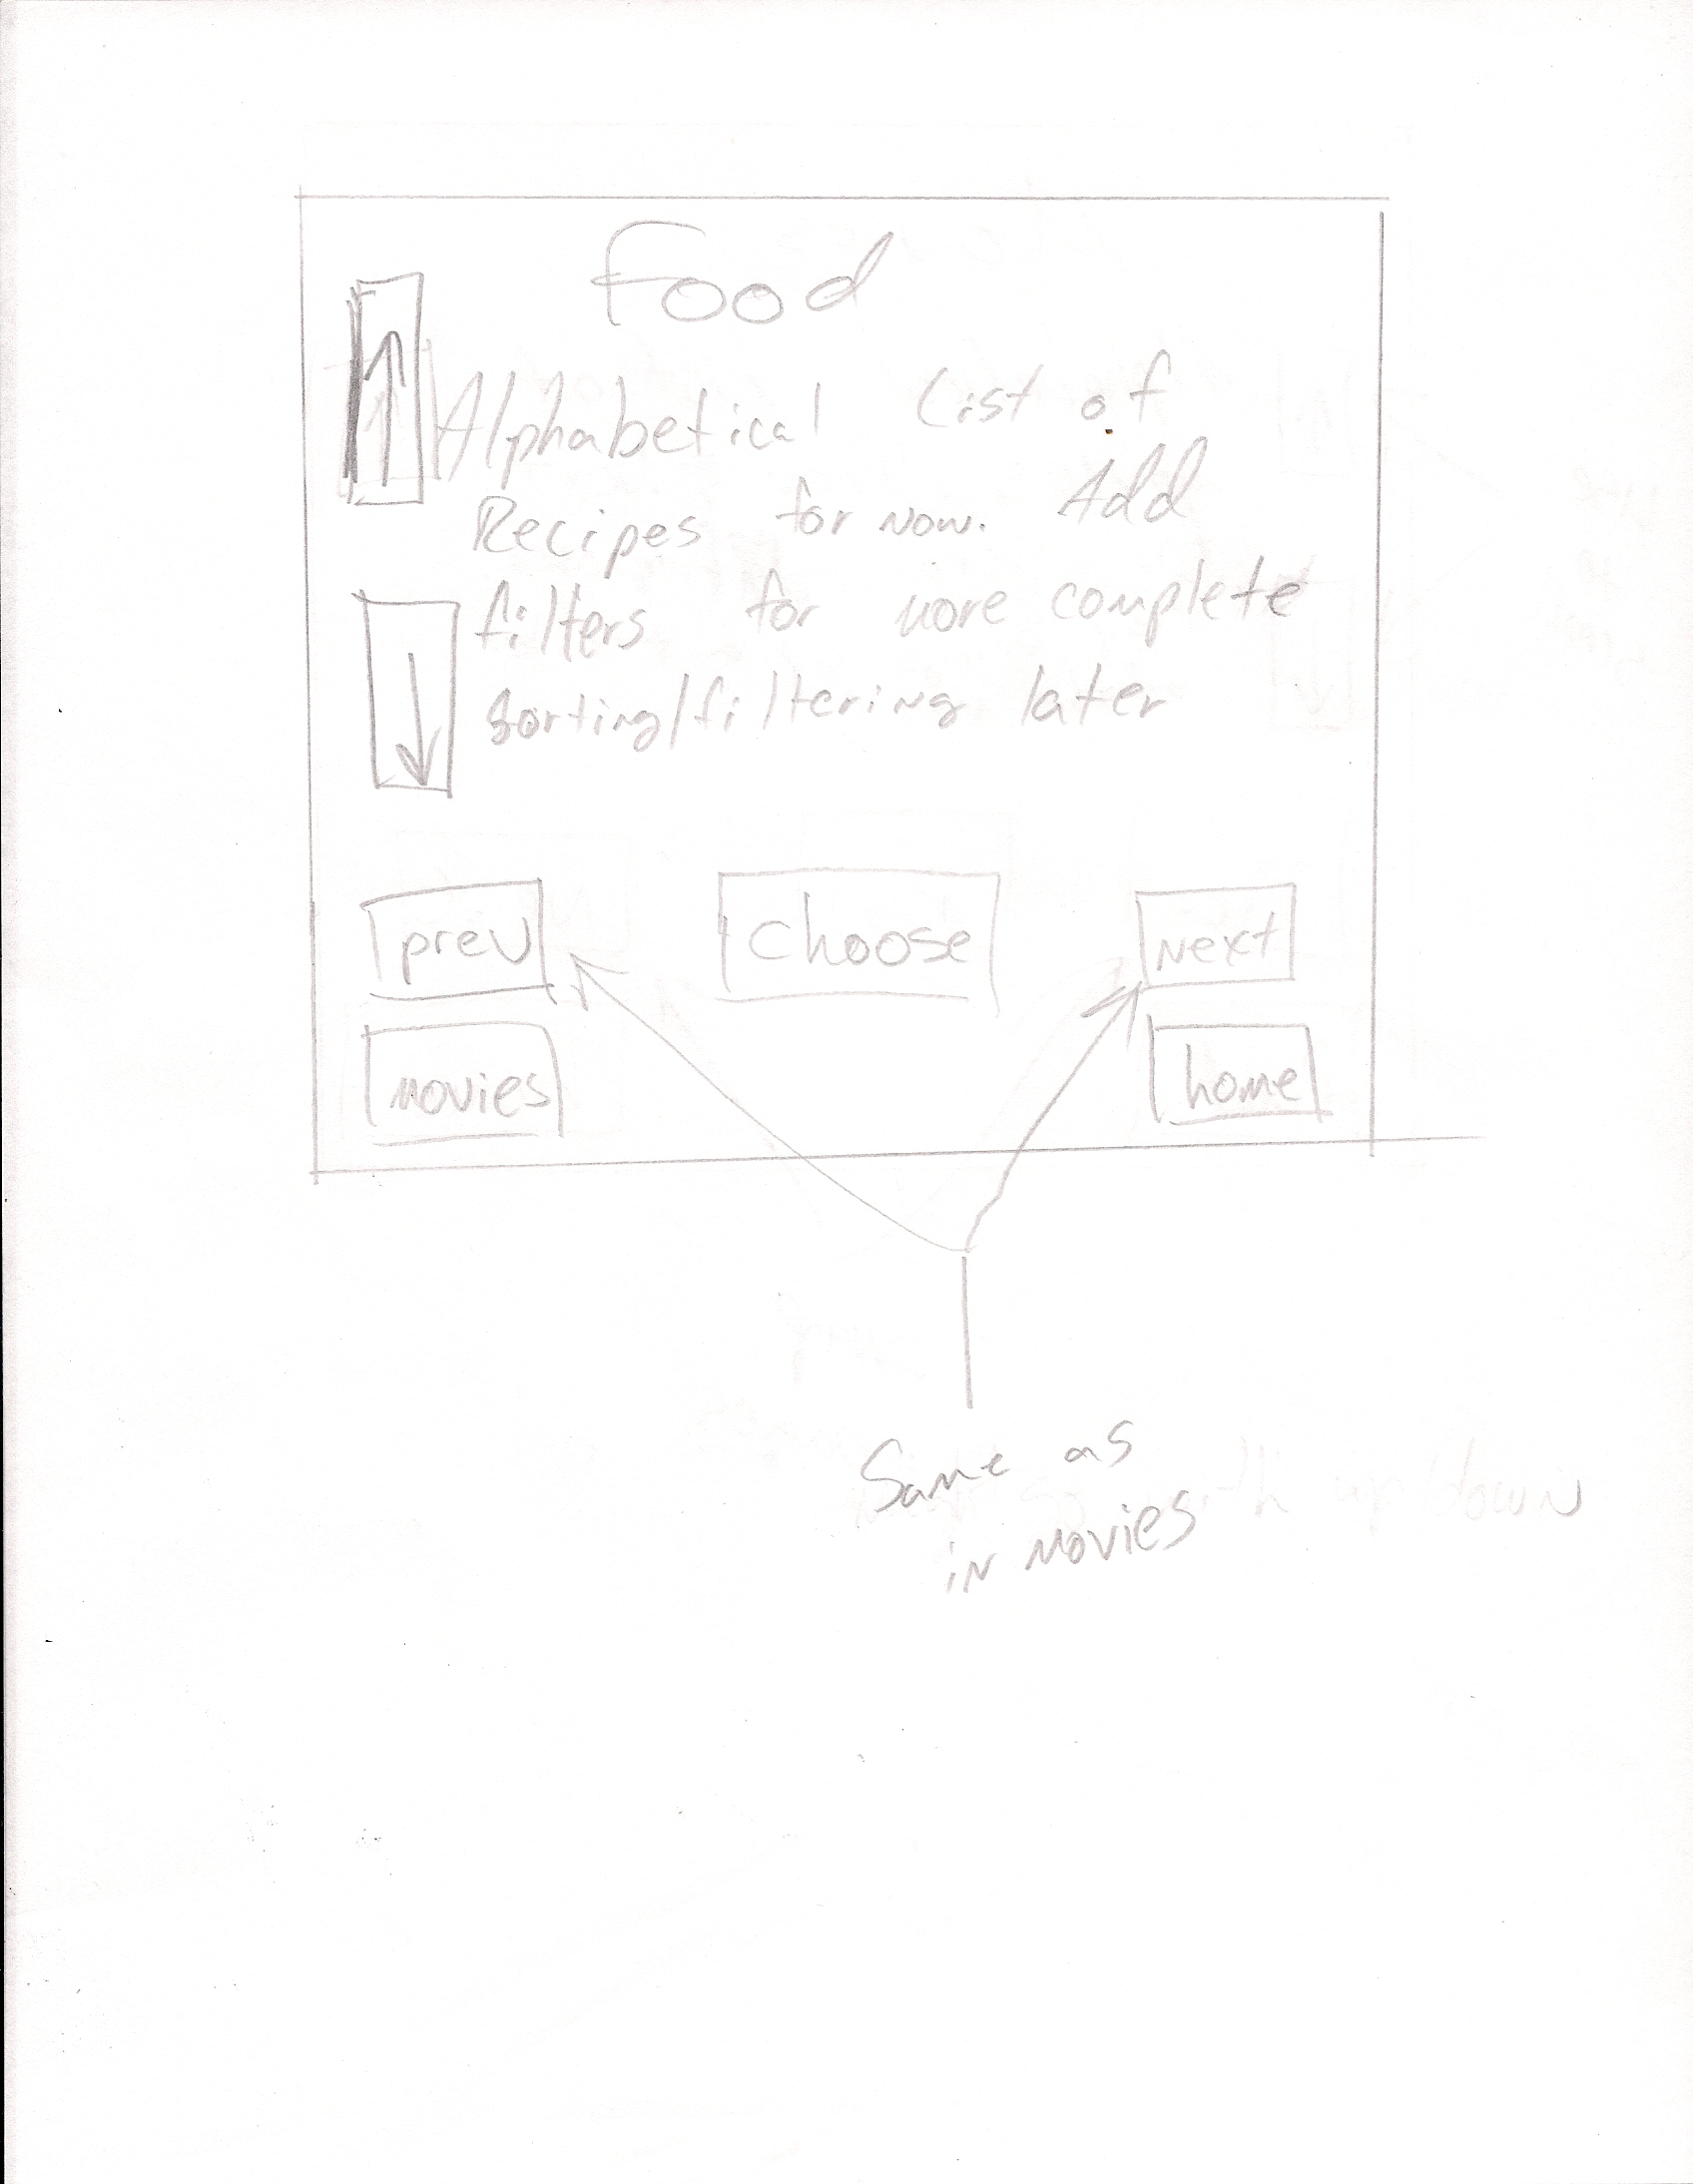 Food
Alphabetical List of
Recipes for now. Add
filters for more complete
Sorting/filtering later
prev
choose
Next
movies
home
Same as
in movies